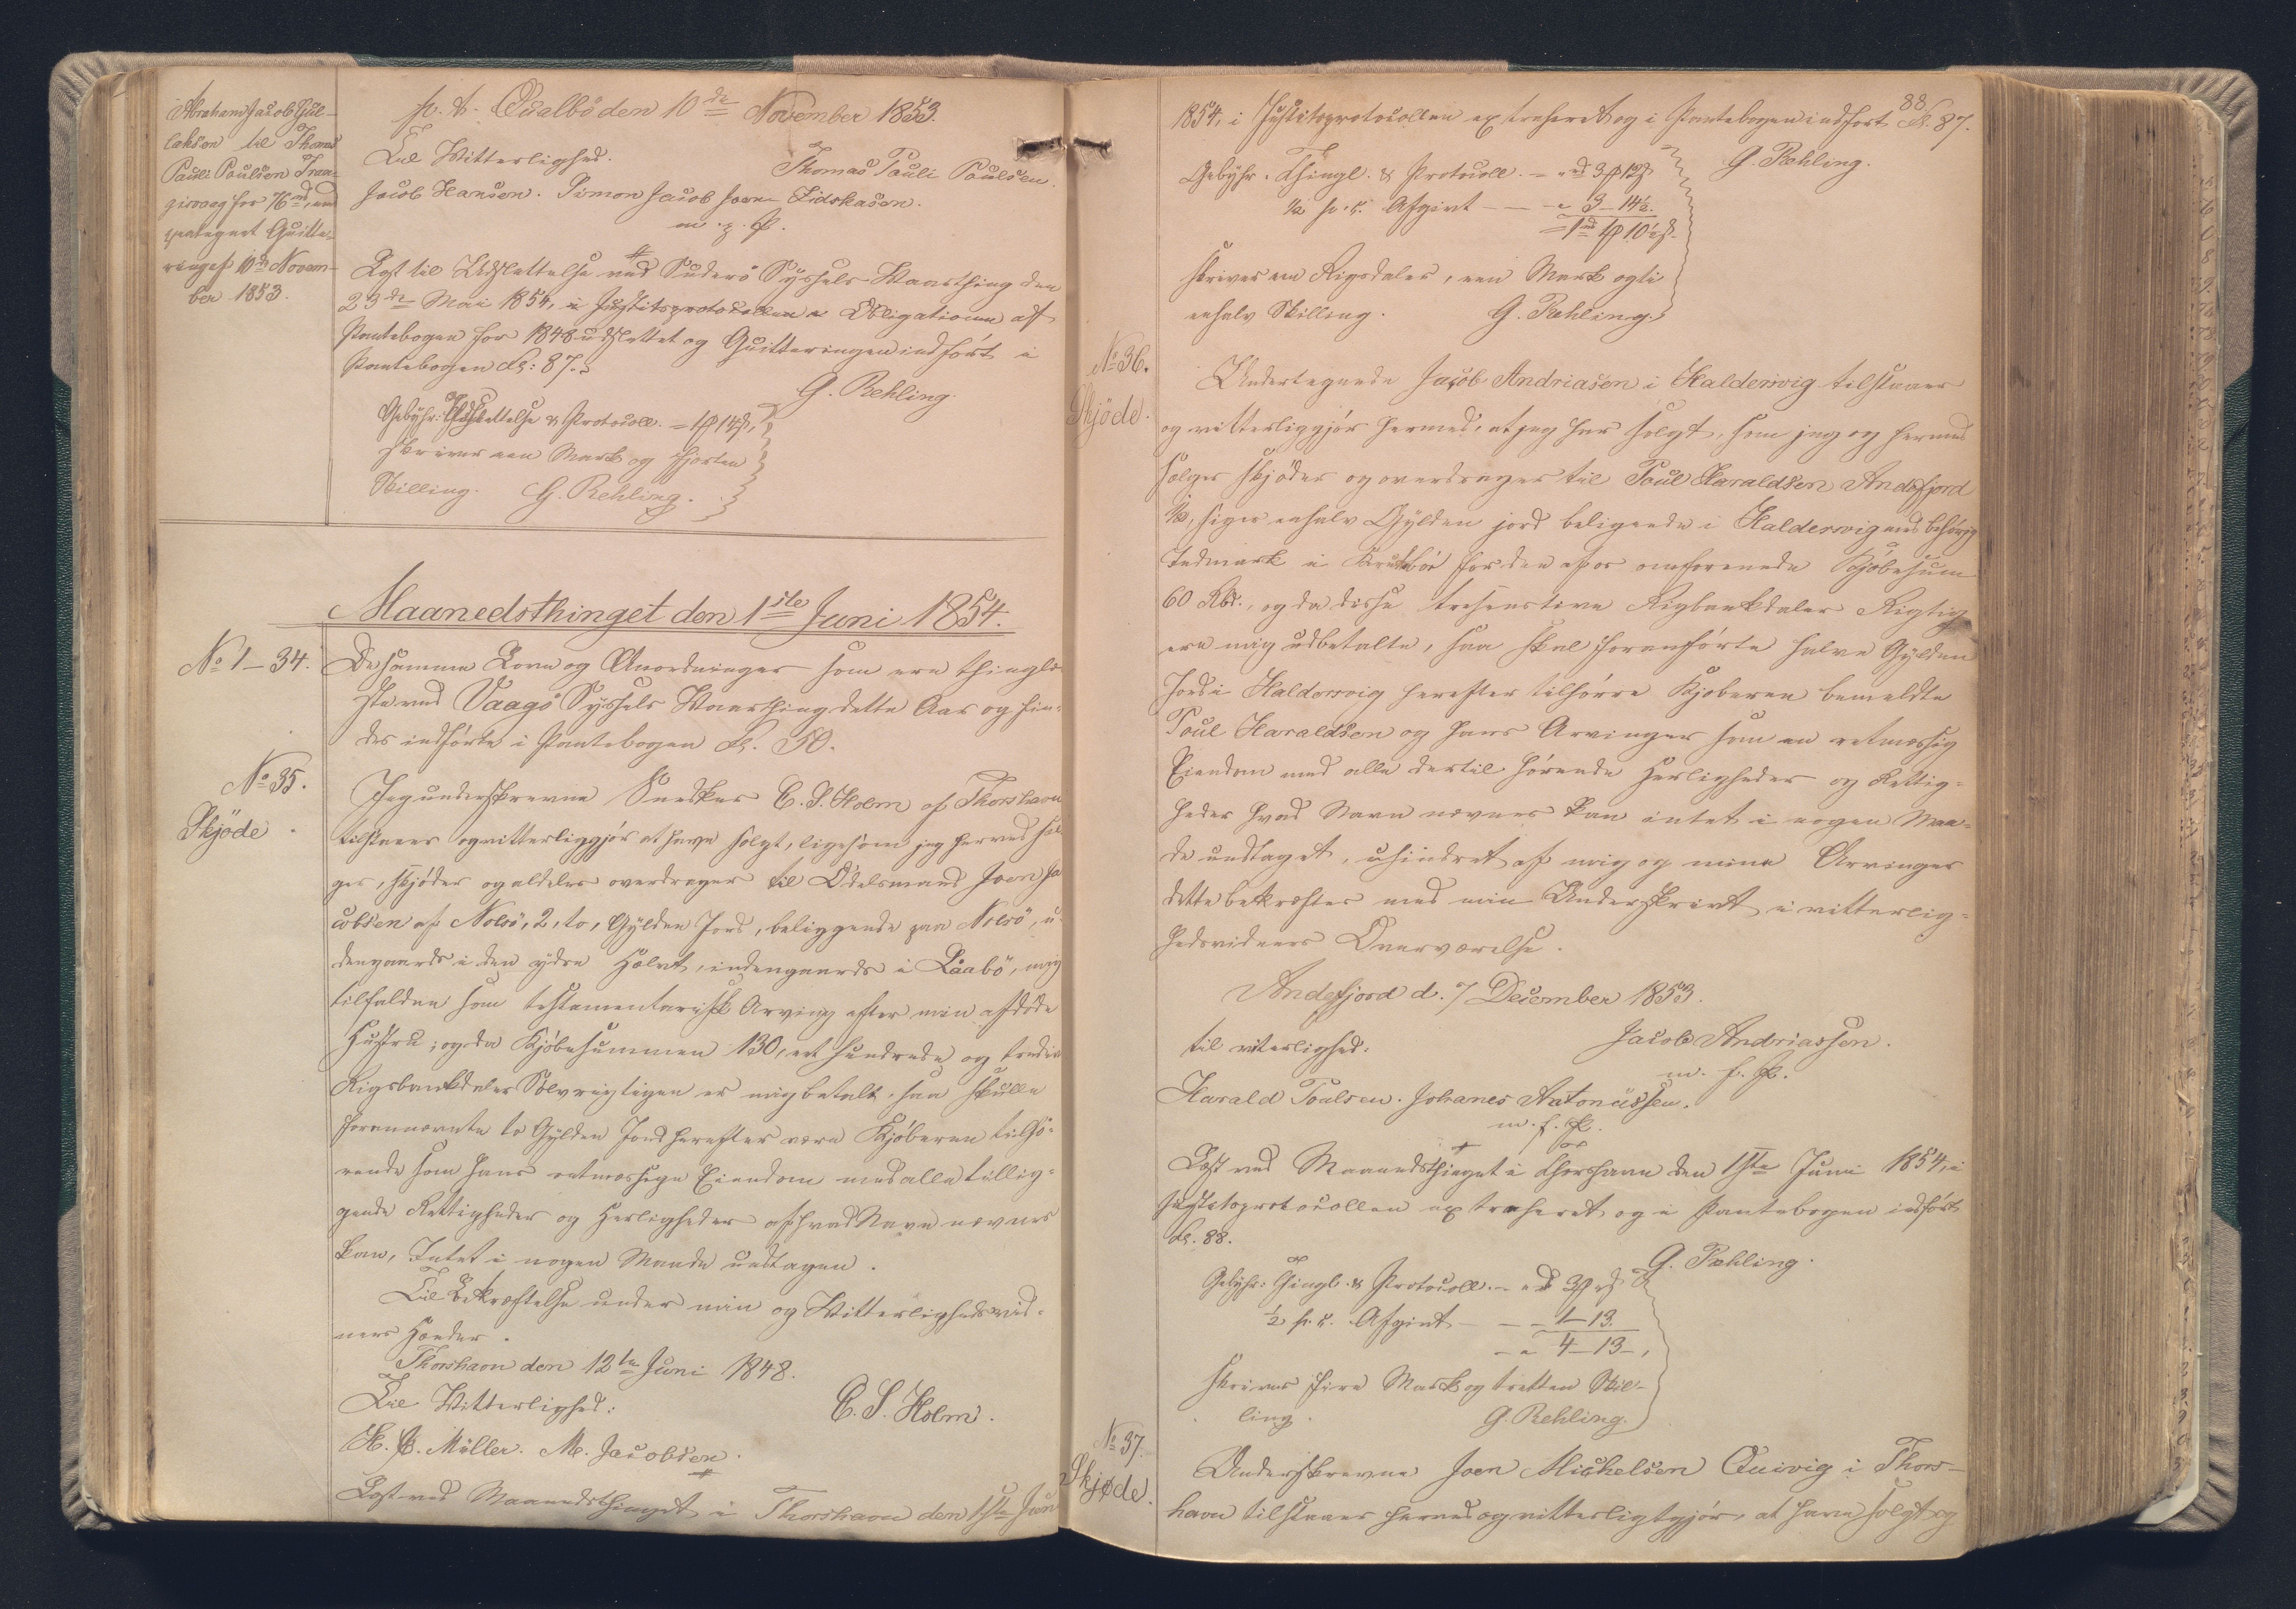 Abraham Jacob Gul-
laksen til Thomas
Pauli Poulsen Tran-
gisvaag for 76 rd, med
paategnet Quitte-
ring af 10de Novem-
ber 1853.
p. t. Qualbö den 10de November 1853.
Til Vitterlighed. Thomas Pauli Poulsen.
Jacob Hansen. Simon Jacob Joens Lidskasen.
m. p.
Læst til Udslettelse ved Suderö Syssels Vaarthing den
23de Mai 1854, i Justitsprotocollen a Obligationen af
Pantebogen for 1848 udslettet og Quitteringen indført i
Pantebogen Fol: 87.
G. Rehling.
Gebyhr: Udslettelse & Protocoll. = 1 14
skriver een Mark og fjorten
Skilling. G. Rehling.
Maanedsthinget den 1ste Juni 1854.
No 1-34. De samme Love og Anordninger som ere thinglæ-
ste ved Vaagö Syssels Vaarthing dette Aar og fin-
des indførte i Pantebogen Fol. 50.
No 35.
Skjöde.
Jeg underskrevne Snedker C. S. Holm af Thorshavn
tilstaaer og vitterliggjør at have solgt, ligesom jeg herved sæl-
ger, skjøder og aldeles overdrager til Odelsmand Joen Ja-
cobsen af Nolsö, 2, to, Gylden Jord, beliggende paa Nolsö, u-
dengaards i den ydre Halvt, indengaards i Låabö, mig
tilfalden som testamentarisk Arving efter min afdøde
Hustru; og da Kjøbesummen 130, et hundrede og tredive
Rigsbankdaler Sølv rigtigen er mig betalt, saa skulle
forannævnte to Gylden Jord herefter være Kjøberen tilhø-
rende som hans retmæssige Eiendom med alle tillig-
gende Rettigheder og Herligheder af hvad Navn nævnes
kan, Intet i nogen Maade undtagen.
Til Bekræftelse under min og Vitterlighedsvid-
ners Hænder.
Thorshavn den 12te Juni 1848.
Til Vitterlighed: C. S. Holm.
H. P. Müller. M. Jacobsen.
Læst ved Maanedsthinget i Thorshavn den 1ste Juni
88
1854, i Justitsprotocollen extraheret og i Pantebogen indført Fol. 87.
G. Rehling.
Gebyhr. Thingl. & Protocoll. - 3 12
½ p. c. Afgivt - - 3 - 14½
= 1 1 10½
skriver een Rigsdaler, een Mark og ti
enhalv Skilling. G. Rehling.
No 36.
Skjöde.
Undertegnede Jacob Andriasen i Haldersvig tilstaaer
og vitterliggjør hermed, at jeg har solgt, som jeg og hermed
sælger skjøder og overdrager til Poul Haraldsen Andefjord
½, siger enhalv Gylden jord beligende i Haldersvig med behörig
Indmark i for den af os omforenede Kjøbesum
60 Rbd., og da disse tresenstive Rigbankdaler Rigtig
ere mig udbetalte, saa skal foranførte halve Gylden
Jord i Haldersvig herefter tilhørre Kjøberen bemeldte
Poul Haraldsen og hans Arvinger som en retmæssig
Eiendom med alle dertil hørende Herligheder og Rettig-
heder hvad Navn nævnes kan intet i nogen Maa-
de undtaget, uhindret af mig og mine Arvinger
dette bekræfter med min Underskrivt i vitterlig-
hedsvidners Overværelse.
Andefjord d. 7 December 1853.
til viterlighed: Jacob Andriassen.
m. f. P.
Harald Poulsen. Johanes Antoniussen.
m. f. P.
Læst ved Maanedsthinget i Thorshavn den 1ste Juni 1854, i
Justitsprotocollen extraheret og i Pantebogen indført
Fol. 88.
G. Rehling.
Gebyhr: Thingl. & Protocoll. - 3
½ p. c. Afgivt - - 1 - 13.
- 4 - 13 -
skriver fire Mark og tretten Skil-
ling. G. Rehling.
No 37.
Skjøde.
Underskrevne Joen Michelsen Quivig i Thors-
havn tilstaaer herved og vitterligtgjør, at have solgt og